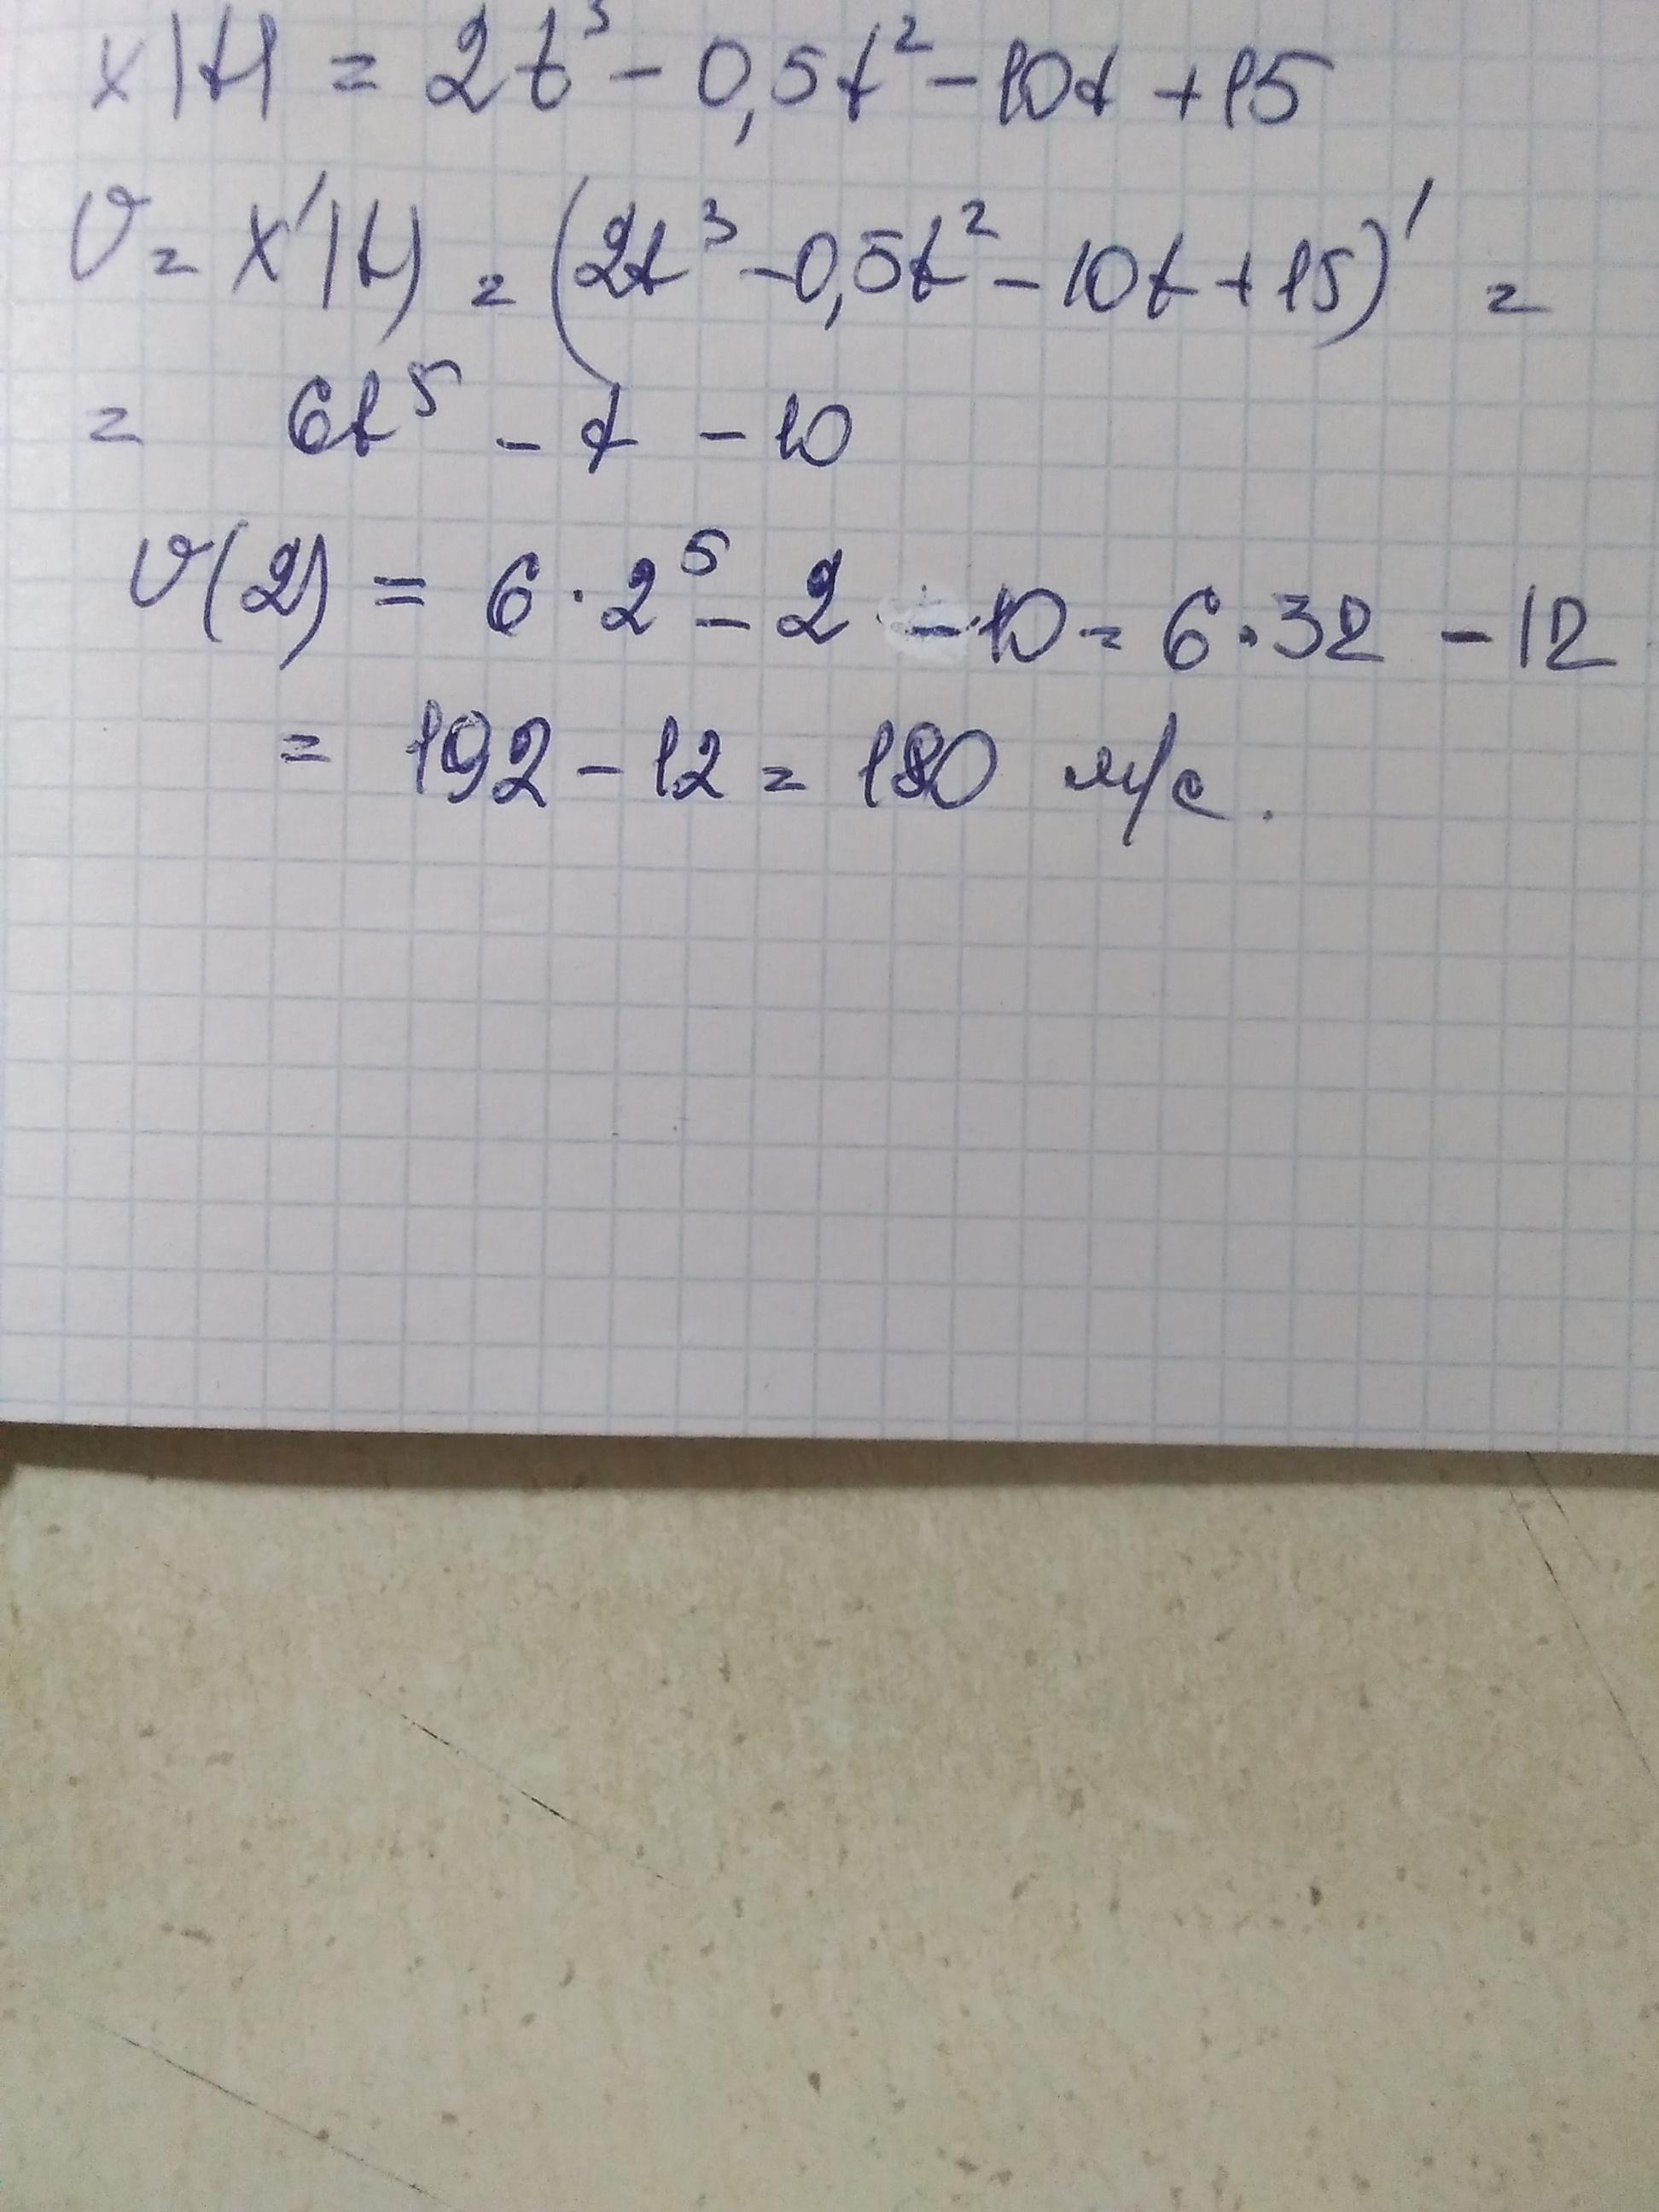 x(t) = 2t³ - 0,5t² - 10t + 15
υ = x'(t) = (2t³ - 0,5t² - 10t + 15)' =
= 6t⁵ - t - 10
υ(2) = 6 · 2⁵ - 2 - 10 = 6 · 32 - 12
= 192 - 12 = 180 м/с.